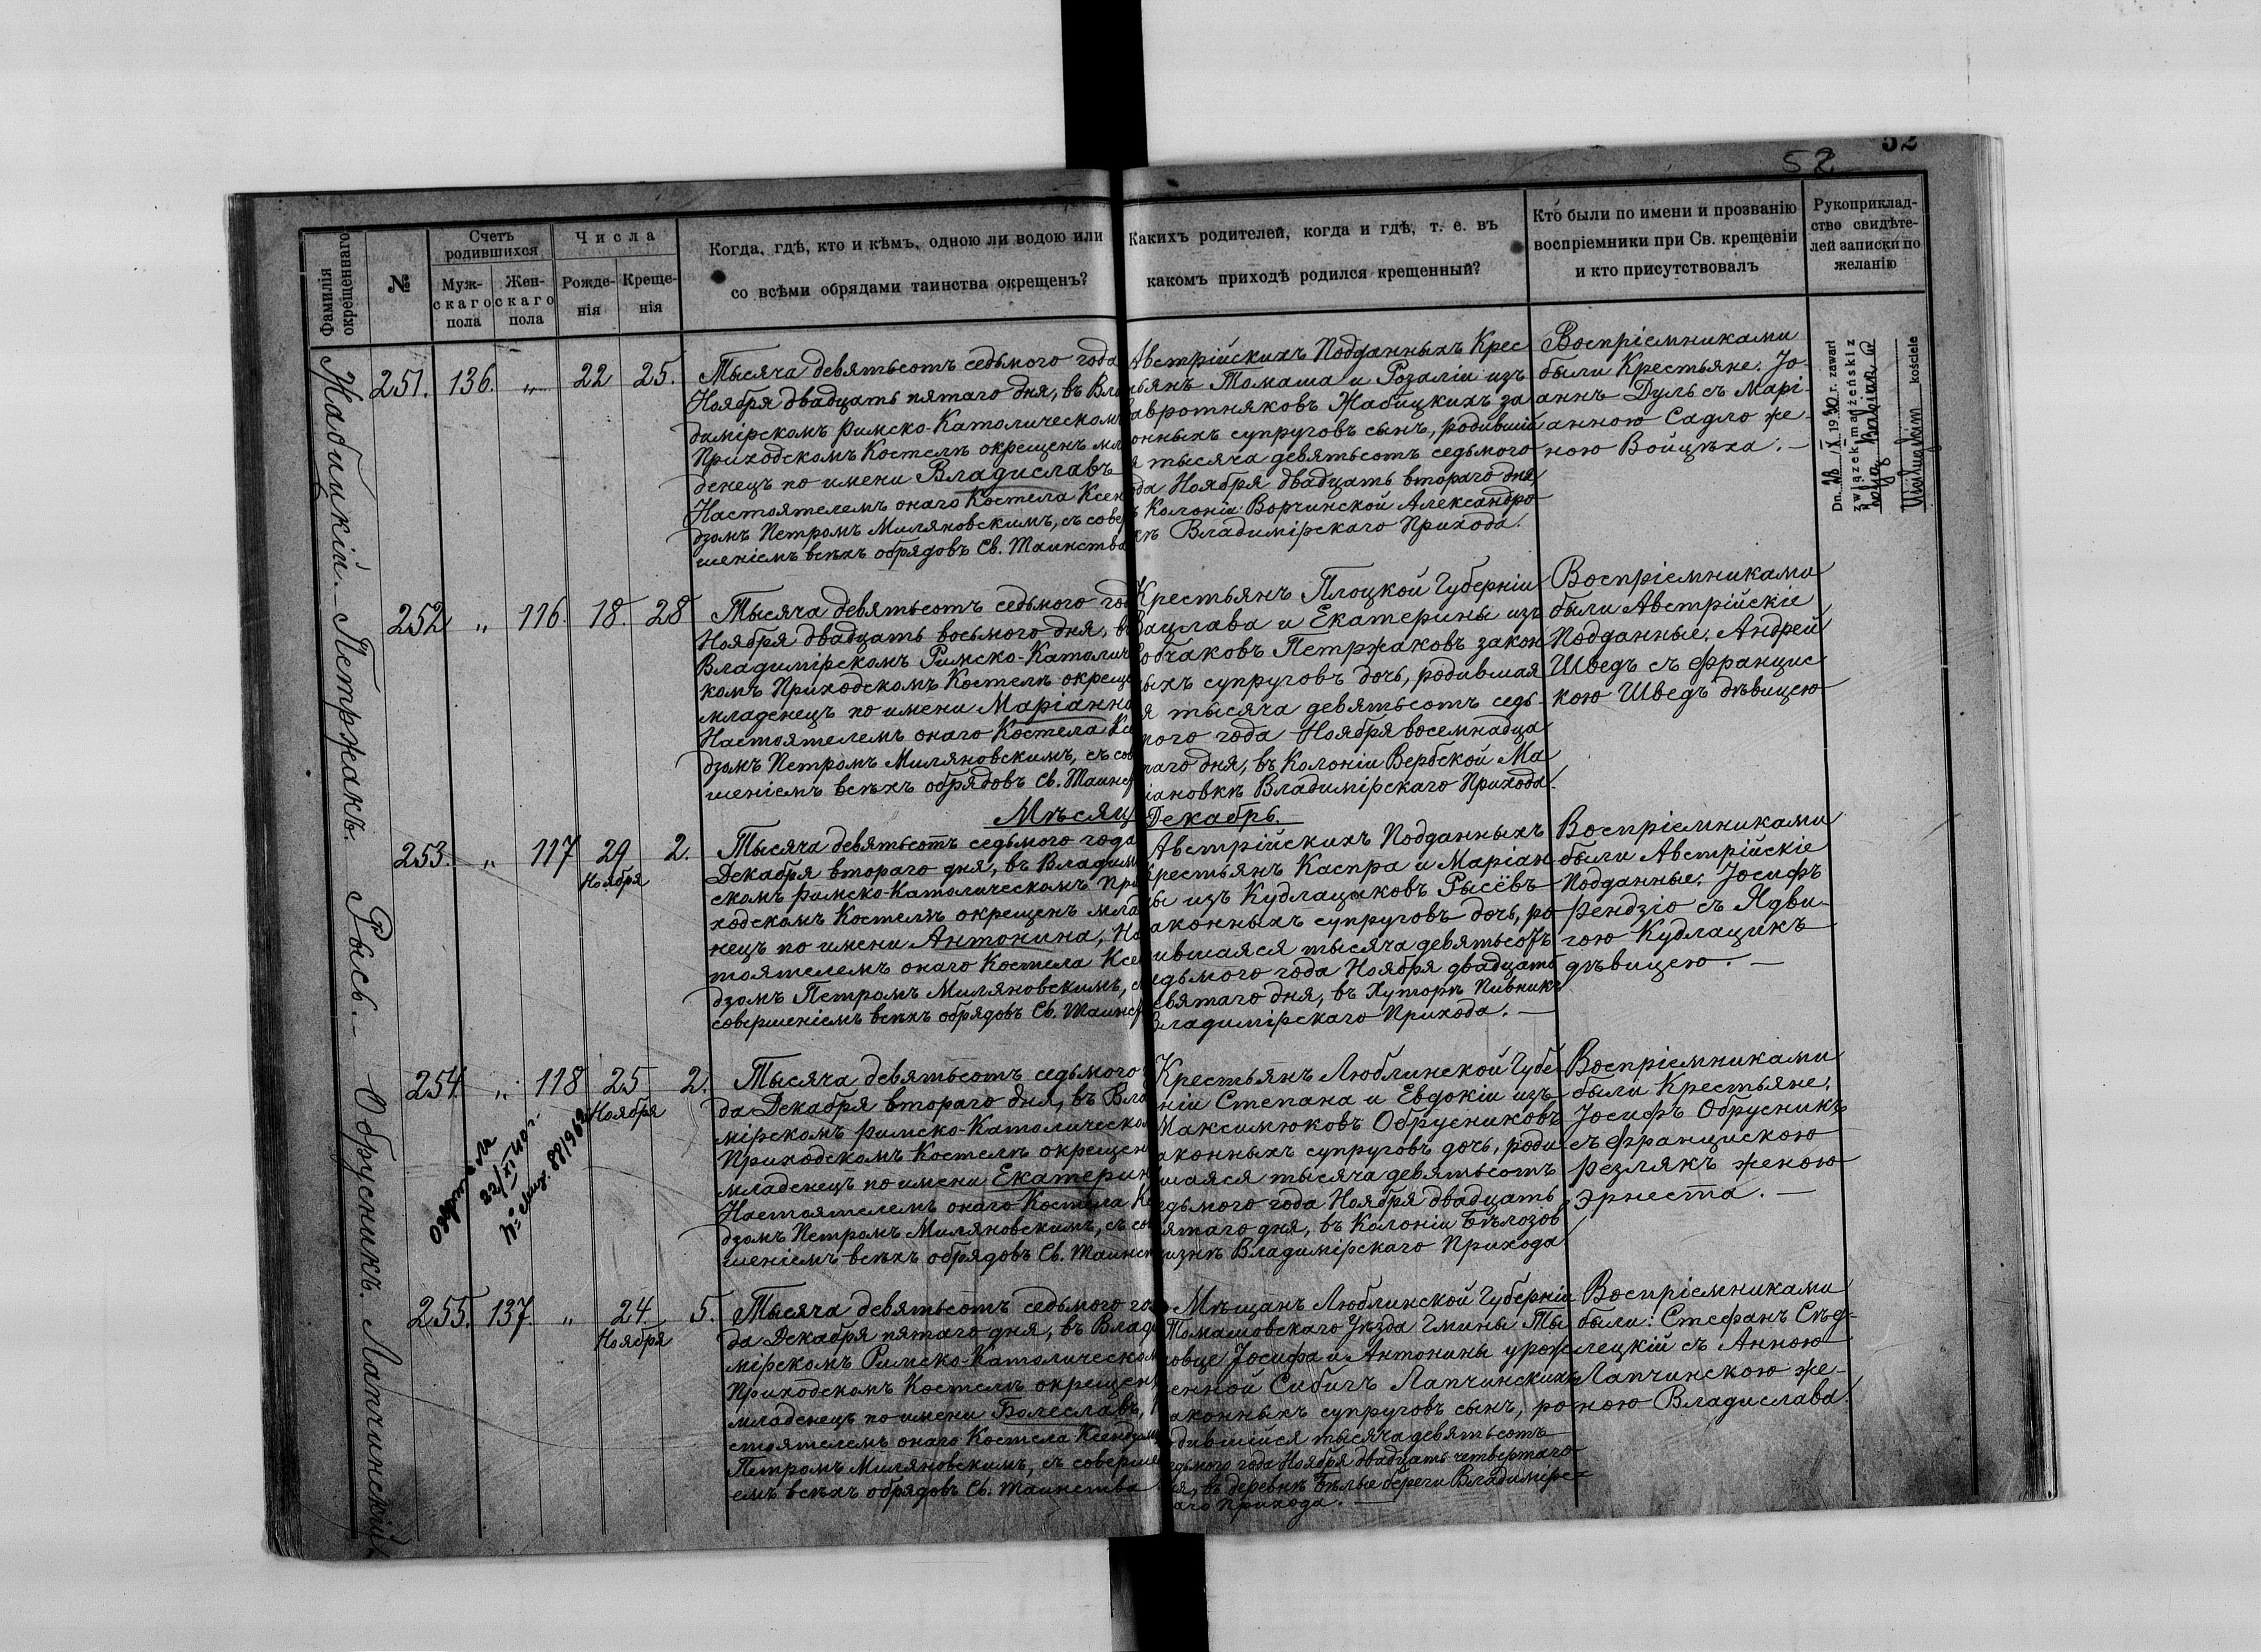 52
52
Фамилія окрещеннаго
№
Счетъ родившихся
Муж-скаго пола
Жен-скаго пола
Числа
Рожде-нія
Креще-нія
Когда, гдѣ, кто и кѣмъ, одною ли водою или
со всѣми обрядами таинства окрещенъ?
Какихъ родителей, когда и гдѣ, т. е. въ
какомъ приходѣ родился крещенный?
Кто были по имени и прозванію
воспріемники при Св. крещеніи
и кто присутствовалъ
Рукоприклад-
ство свидѣте-
лей записки по
желанію
Жабицкій.
251. 136. „ 22 25.
Тысяча девятьсотъ седьмого года
Ноября двадцать пятаго дня, въ Вла
димірскомъ Римско-Католическомъ
Приходскомъ Костелѣ окрещенъ мла
денецъ по имени Владиславъ
Настоятелемъ онаго Костела Ксен
дзомъ Петромъ Миляновскимъ, съ совер
шеніемъ всѣхъ обрядовъ Св. Таинства
Австрійскихъ Подданныхъ Крес
тьянъ Томаша и Розаліи изъ
Лавротняковъ Жабицкихъ за
онныхъ супруговъ сынъ, родившій
я тысяча девятьсотъ седьмого
да Ноября двадцать втораго дня
ъ Колоніи Ворчинской Александро
кѣ Владимірскаго Прихода.
Воспріемниками
были Крестьяне: Іо-
аннъ Дуль съ Марі-
анною Садло же-
ною Войцѣха. —
Dn. 28/X 1930 r. zawarł
związek małżeński z
kościele
Петржакъ.
252 „ 116. 18. 28
Тысяча девятьсотъ седьмого год
Ноября двадцать восьмого дня, въ
Владимірскомъ Римско-Католич
комъ Приходскомъ Костелѣ окреще
младенецъ по имени Маріанна
Настоятелемъ онаго Костела Кс
дзомъ Петромъ Миляновскимъ, съ сов
шеніемъ всѣхъ обрядовъ Св. Таинст
Крестьянъ Плоцкой Губерніи
Вацлава и Екатерины изъ
обчаковъ Петржаковъ закон
ныхъ супруговъ дочь, родившая
я тысяча девятьсотъ седь-
мого года Ноября восемнадца
таго дня, въ Колоніи Вербской Ма
іановкѣ Владимірскаго Прихода.
Воспріемниками
были Австрійскіе
Подданные: Андрей
Шведъ съ Францис
кою Шведъ дѣвицею
Мѣсяцъ Декабрь.
Рысь.
253. „ 117 29 Ноября 2.
Тысяча девятьсотъ седьмого года
Декабря втораго дня, въ Владимі
скомъ Римско-Католическомъ При
ходскомъ Костелѣ окрещенъ млад
нецъ по имени Антонина, Нас
тоятелемъ онаго Костела Ксен
дзомъ Петромъ Миляновскимъ, съ
совершеніемъ всѣхъ обрядовъ Св. Таинст
Австрійскихъ Подданныхъ
Крестьянъ Каспра и Маріан
ны изъ Кудлациковъ Рысёвъ
аконныхъ супруговъ дочь, ро
ившаяся тысяча девятьсотъ
едьмого года Ноября двадцать
евятаго дня, въ Хуторѣ Пивникъ
Владимірскаго Прихода. —
Воспріемниками
были Австрійскіе
Подданные: Іосифъ
Рендзіо съ Ядви-
гою Кудлацикъ
дѣвицею. —
Обрусникъ.
254. „ 118 25 Ноября 2.
Тысяча девятьсотъ седьмого
да Декабря втораго дня, въ Вла
мірскомъ Римско-Католическо
Приходскомъ Костелѣ окрещен
младенецъ по имени Екатерин
Настоятелемъ онаго Костела Кс
дзомъ Петромъ Миляновскимъ, съ со
шеніемъ всѣхъ обрядовъ Св. Таинст
Крестьянъ Люблинской Губе
ніи Степана и Евдокіи изъ
Максимюковъ Обрусниковъ
аконныхъ супруговъ дочь, роди
шаяся тысяча девятьсотъ
едьмого года Ноября двадцать
ятаго дня, въ Колоніи Бѣлозов
изнѣ Владимірскаго Прихода
Воспріемниками
были Крестьяне:
Іосифъ Обрусникъ
съ Францискою
Резлякъ женою
Эрнеста. —
Лапчинскій
255. 137. „ 24. Ноября 5.
Тысяча девятьсотъ седьмого го
да Декабря пятаго дня, въ Влад
мірскомъ Римско-Католическом
Приходскомъ Костелѣ окрещен
младенецъ по имени Болеславъ,
стоятелемъ онаго Костела Ксендзом
Петромъ Миляновскимъ, съ соверше
емъ всѣхъ обрядовъ Св. Таинства
Мѣщанъ Люблинской Губерніи
Томашовскаго Уѣзда Гмины Ты
овце Іосифа и Антонины урож
енной Сибигъ Лапчинскихъ
аконныхъ супруговъ сынъ, ро
дившійся тысяча девятьсотъ
едьмого года Ноября двадцать четвертаго
ня, въ деревнѣ Бѣлые береги Владимірс-
аго Прихода. —
Воспріемниками
были: Стефанъ Сѣд-
лецкій съ Анною
Лапчинскою же-
ною Владислава.